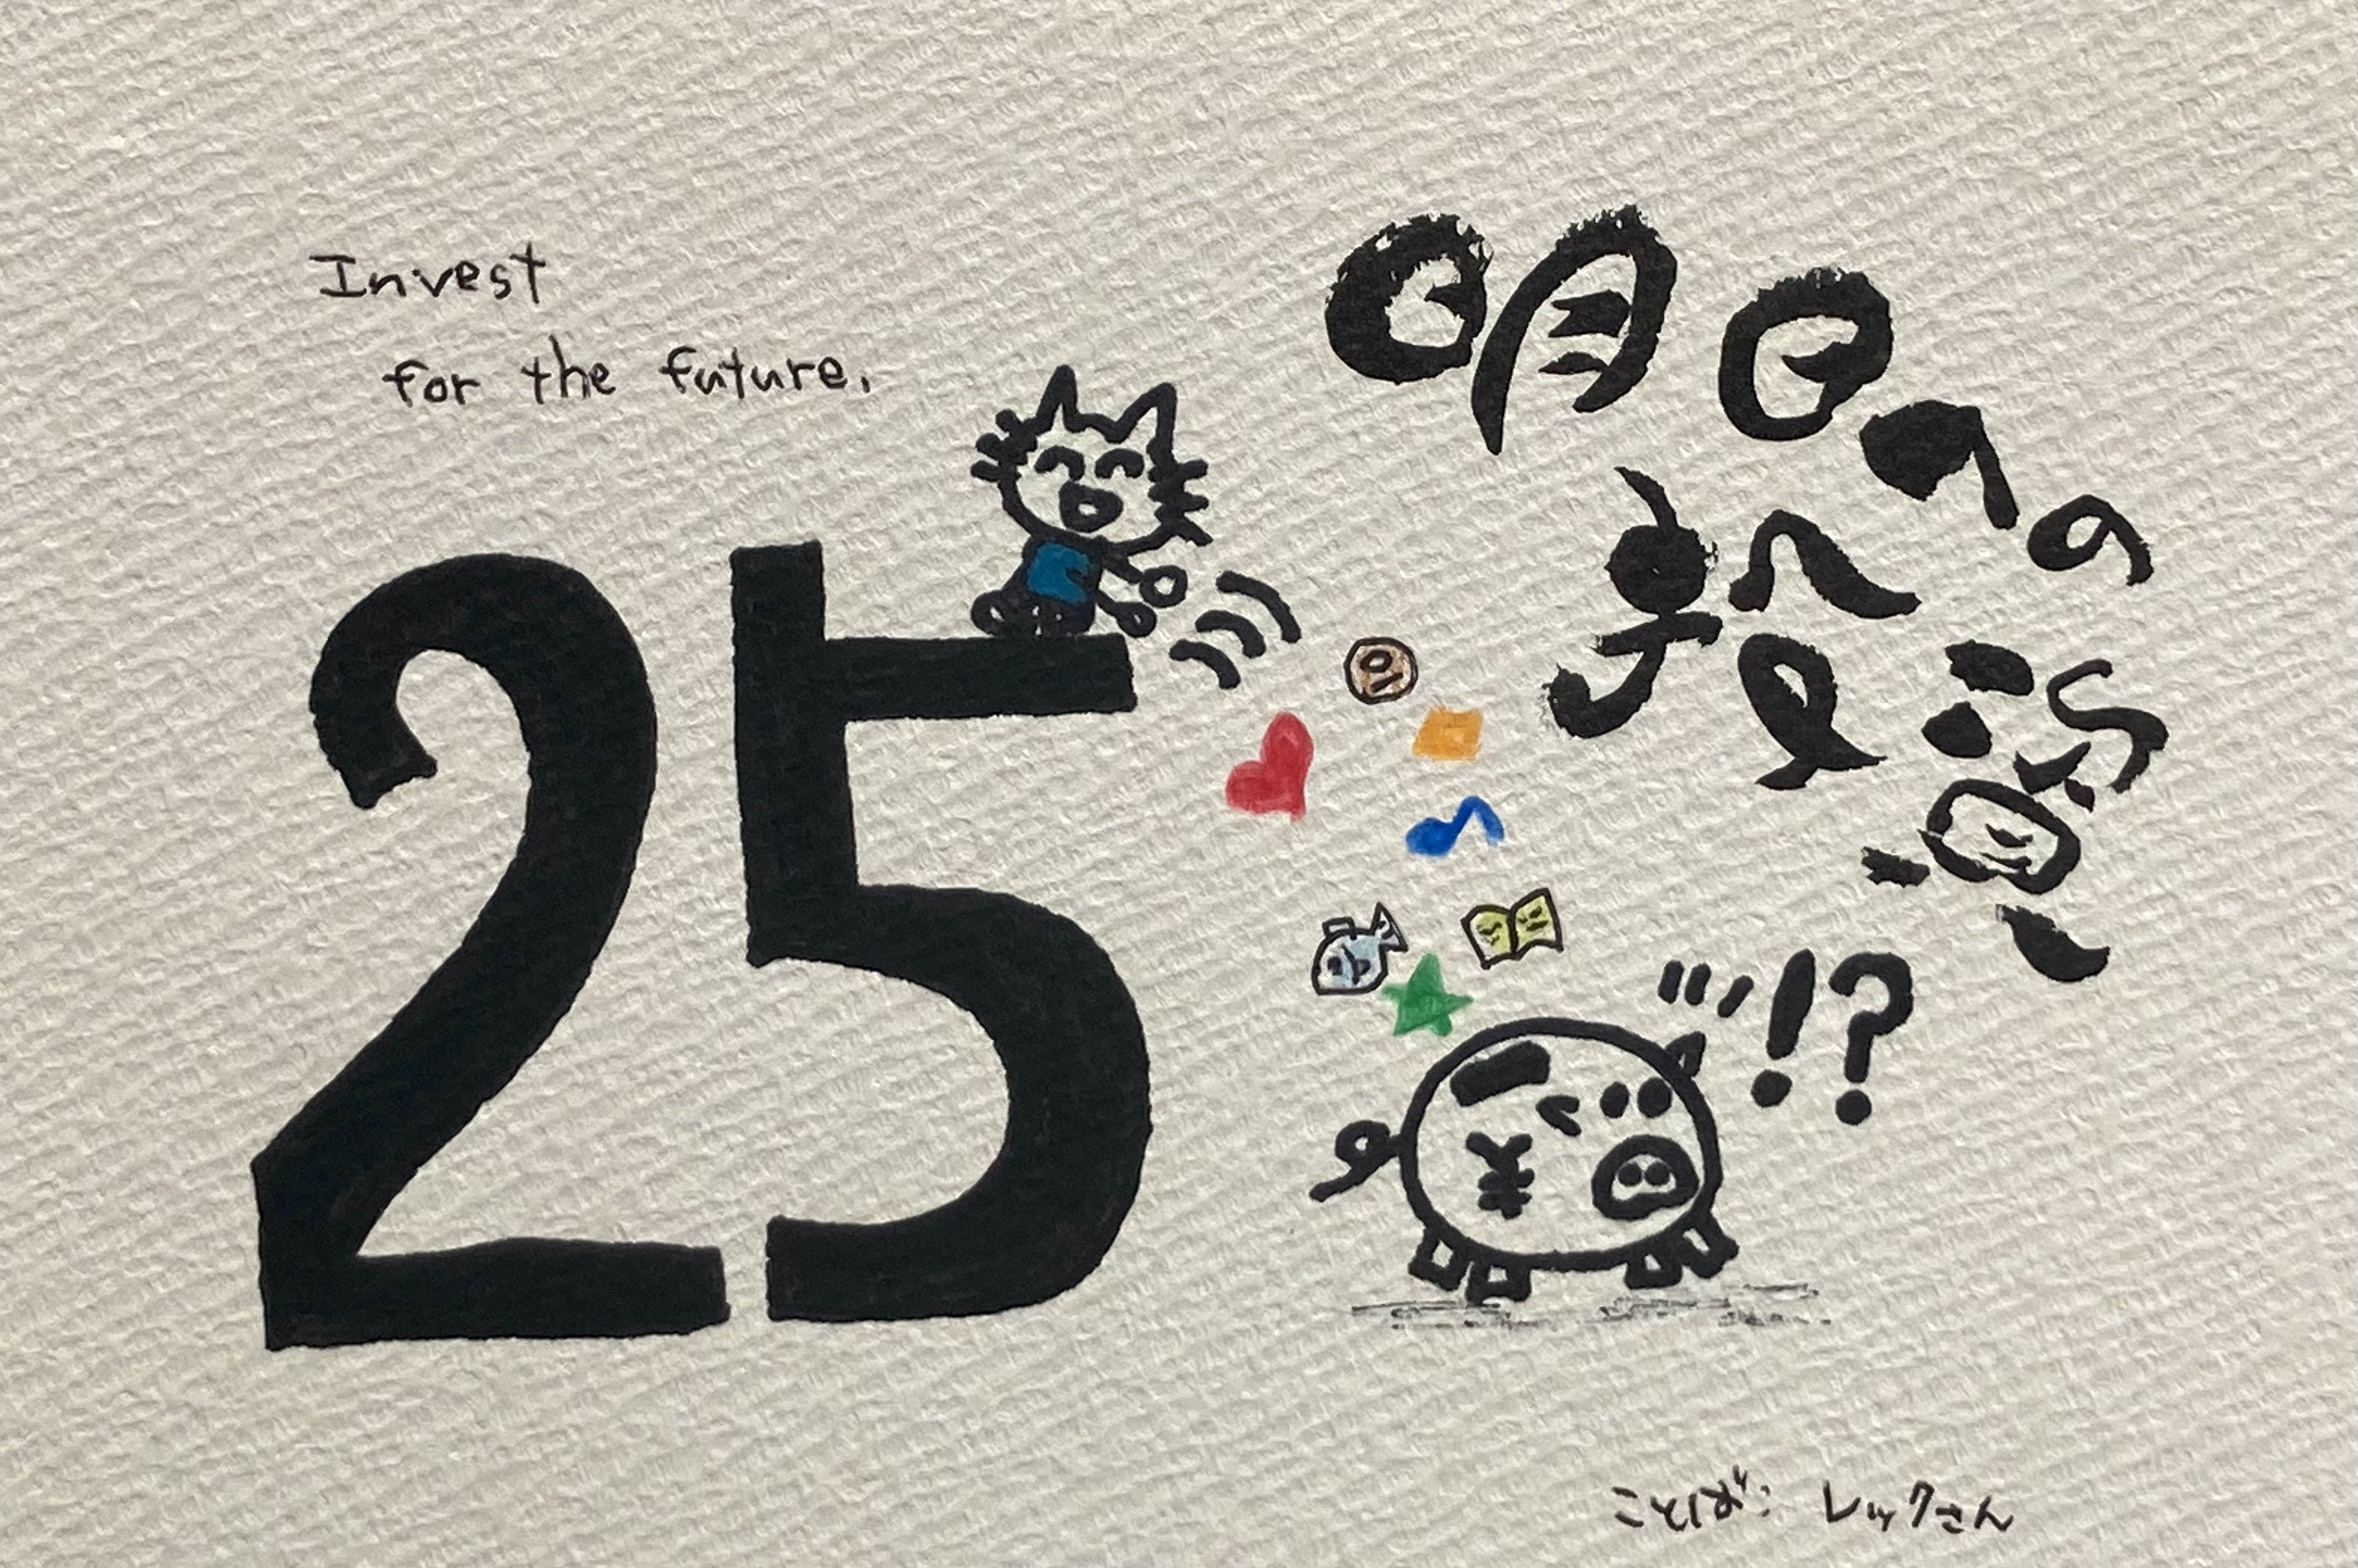 Invest
for the future.
25
明日への
投資
10
!?
¥
ことば: レックさん